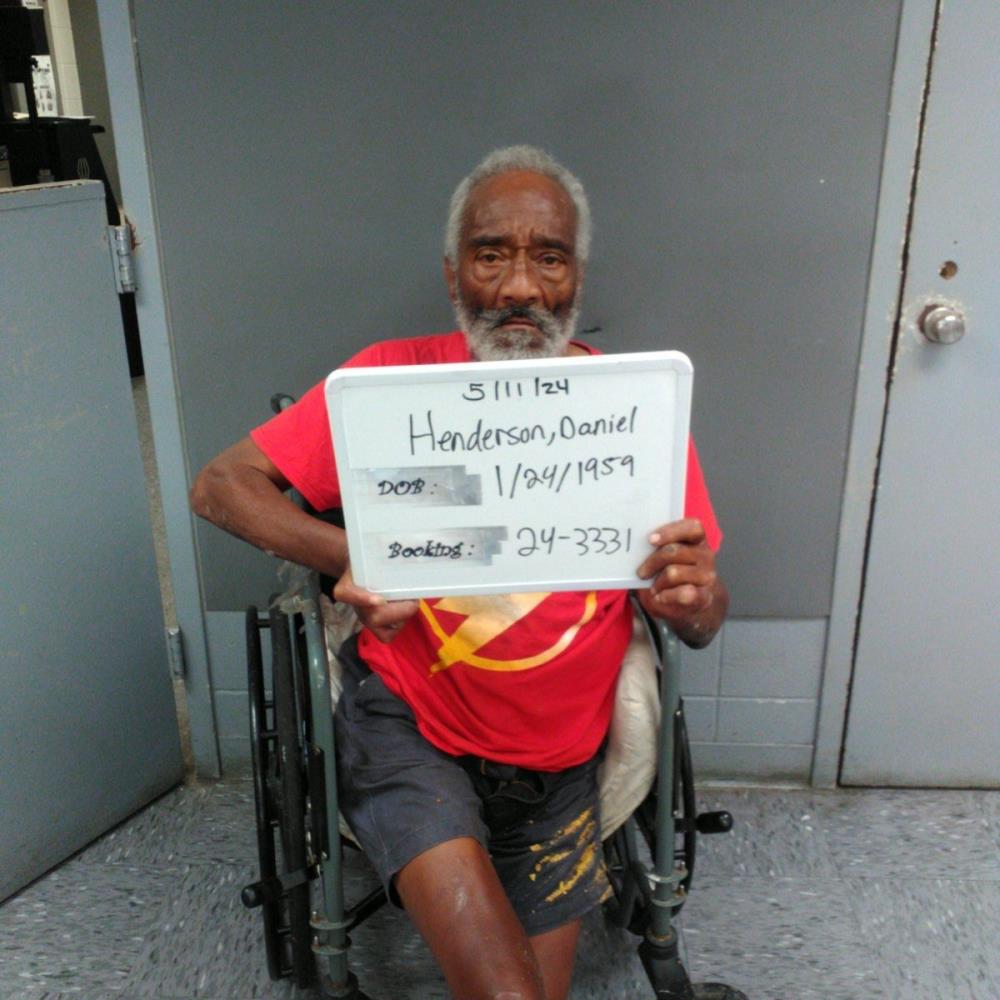 5/11/24
Henderson, Daniel
DOB: 1/24/1959
Booking: 24-3331